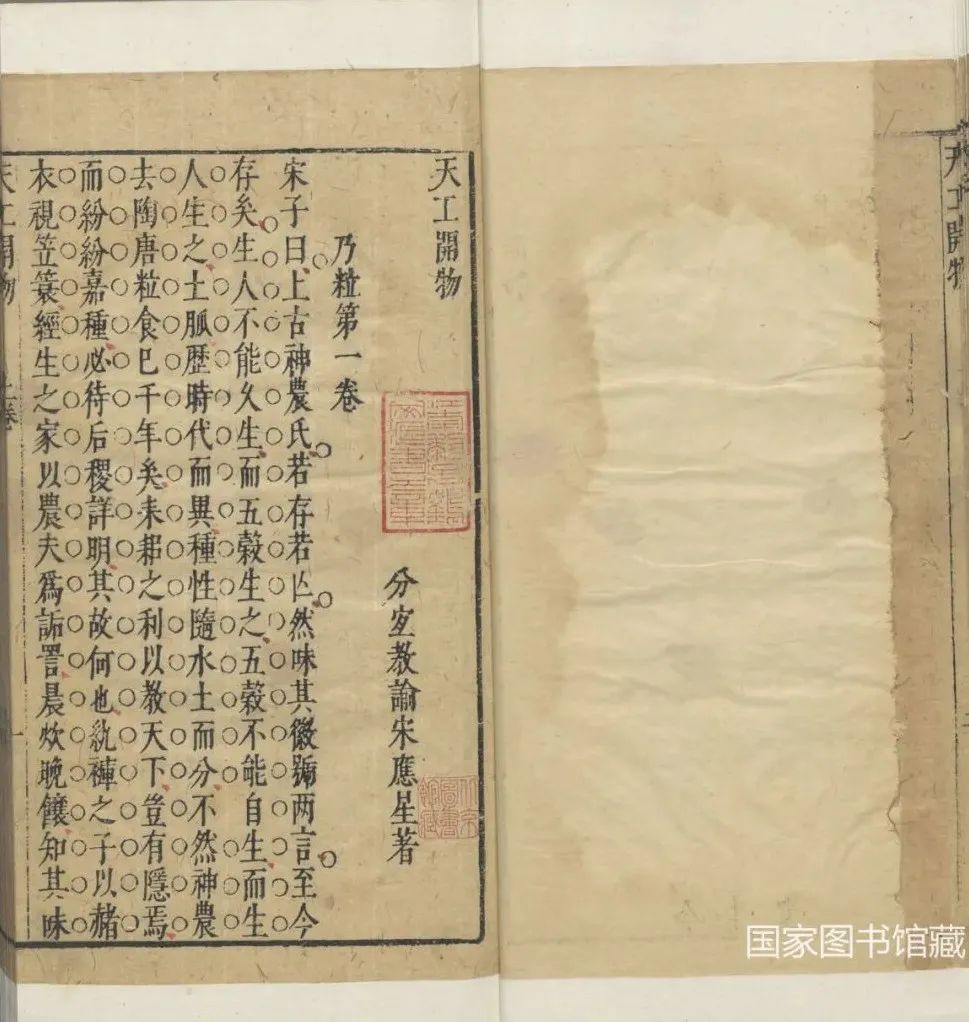 天工開物
天工開物
分宜教諭宋應星著
乃粒第一卷
宋子曰上古神農氏若存若亡然味其徽號两言至今
存矣生人不能久生而五穀生之五穀不能自生而生
人生之土脈歷時代而異種性隨水土而分不然神農
去陶唐粒食已千年矣耒耜之利以教天下豈有隱焉
而紛紛嘉種必待后稷詳明其故何也紈褲之子以赭
衣視笠簑經生之家以農夫爲詬詈晨炊晚饟知其味
天工開物 上卷 一
北京圖書館藏
国家图书馆藏